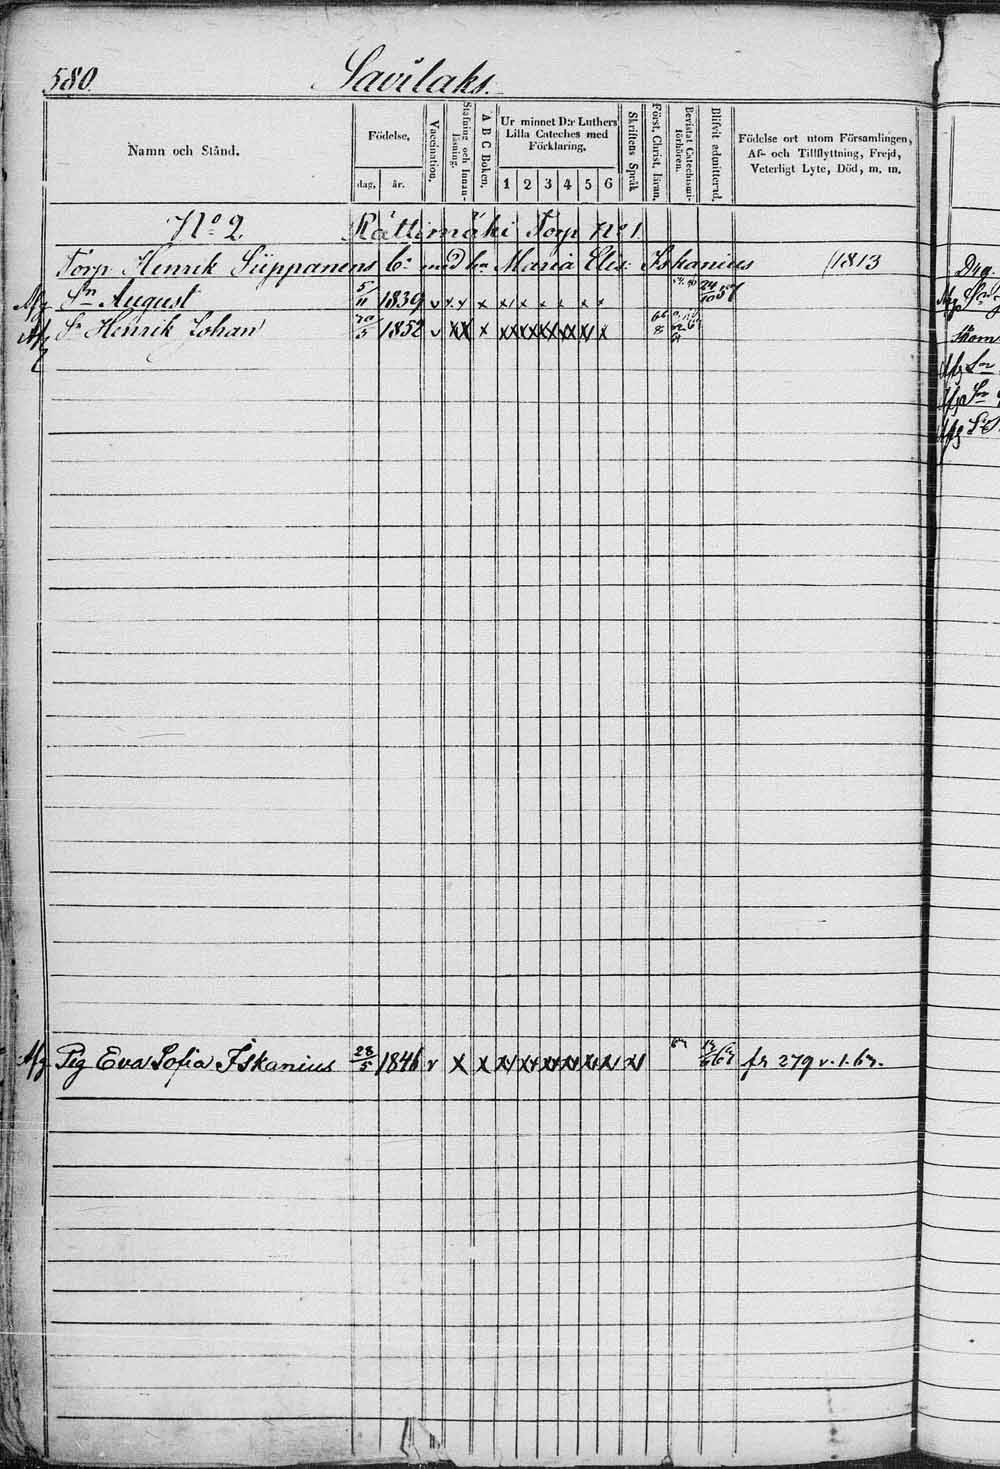 580.
Savilaks.
Namn och Stånd.
Födelse,
dag,
år.
Vaccination.
Stafning och Innan-läsning.
A B C Boken.
Ur minnet D:r Luthers
Lilla Cateches med
Förklaring.
1 2 3 4 5 6
Skriftens Språk
Först. Christ. läran.
Bevistat Catechismi-förhören.
Blifvit admitterad.
Födelse ort utom Församlingen,
Af- och Tillflyttning, Frejd,
Veterligt Lyte, Död, m. m.
No 2 Rättimäki Torp No 1
Torp Henrik Siippanens Bn med hu Maria Elis: Iskanius 1813
Afg Sn August 5/11 1839 v x x x x x x x x x 24/10 57
Afg Sn Henrik Johan 20/5 1852 v x x x x x x x x x
Afg Pig Eva Sofia Iskanius 28/5 1846 v x x x x x x x x x fr 279 v. 1. 67.